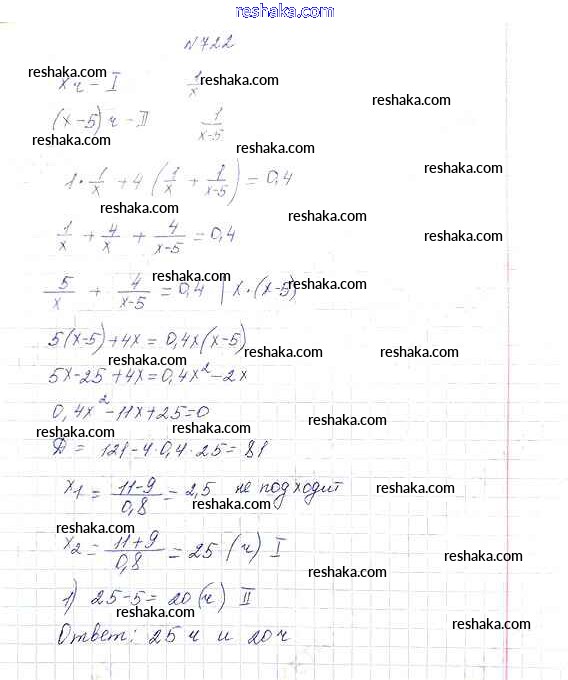 reshaka.com
N 722
reshaka.com
x ч - I 1/x
reshaka.com
reshaka.com
(x-5) ч - II 1/(x-5)
reshaka.com
reshaka.com
reshaka.com
reshaka.com
1 · 1/x + 4 (1/x + 1/(x-5)) = 0,4
reshaka.com
reshaka.com
1/x + 4/x + 4/(x-5) = 0,4
reshaka.com
reshaka.com
reshaka.com
5/x + 4/(x-5) = 0,4 | x · (x-5)
5(x-5)+4x = 0,4x(x-5)
reshaka.com
reshaka.com
reshaka.com
5x-25+4x = 0,4x²-2x
0,4x²-11x+25=0
reshaka.com
reshaka.com
reshaka.com
D = 121-4·0,4·25 = 81
x₁ = (11-9)/0,8 = 2,5 не подходит
reshaka.com
reshaka.com
reshaka.com
x₂ = (11+9)/0,8 = 25 (ч) I
reshaka.com
reshaka.com
1) 25-5 = 20 (ч) II
reshaka.com
reshaka.com
Ответ: 25 ч и 20 ч